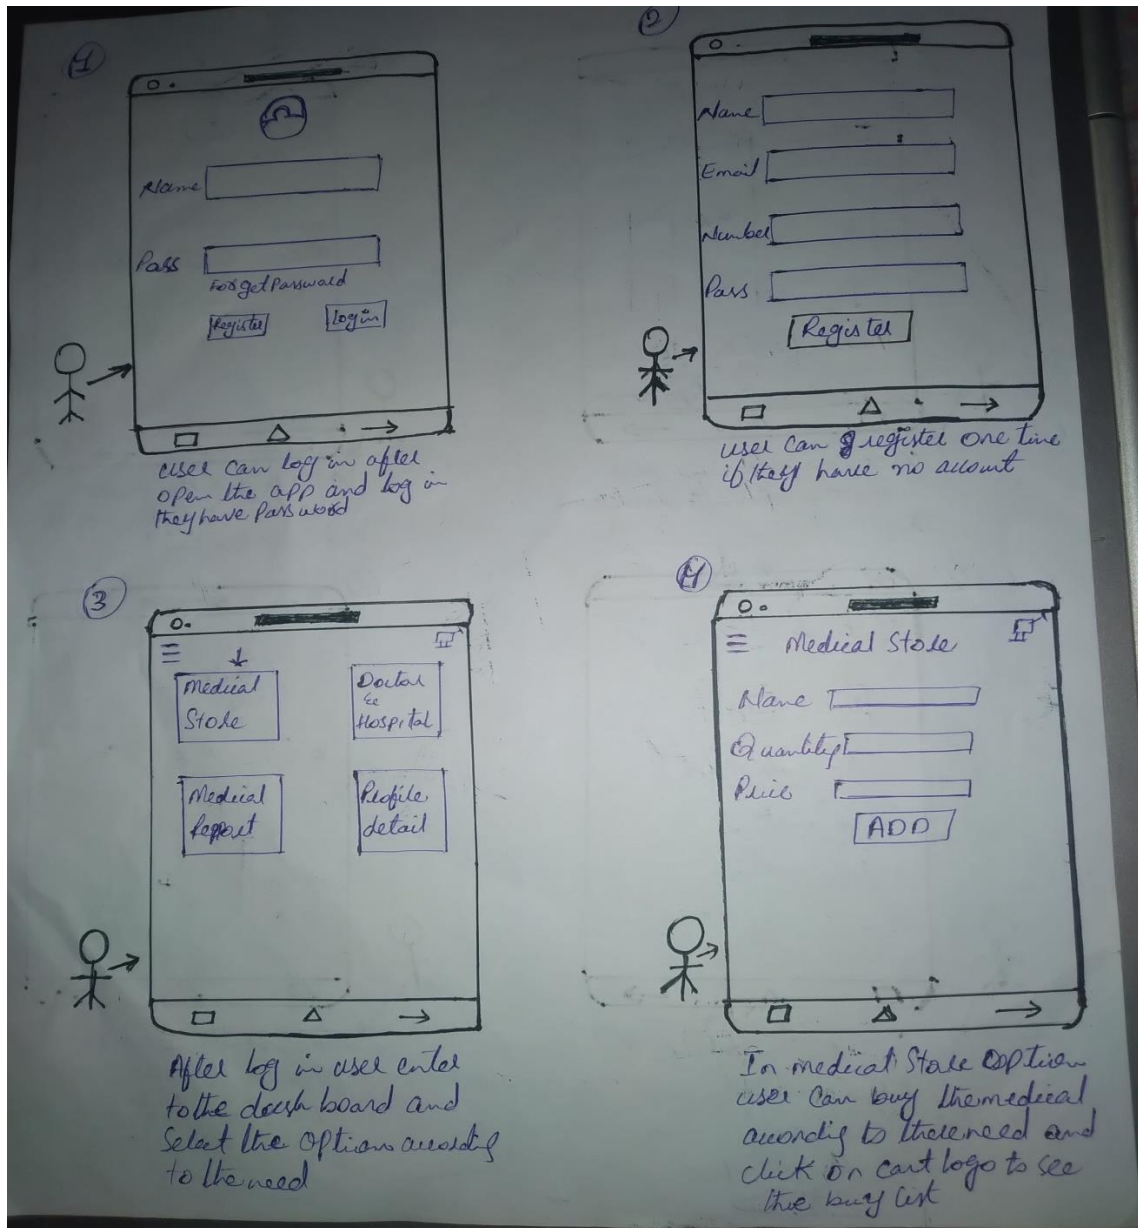 1
Name
Pass
Forget Password
Register
Log in
user can log in after
open the app and log in
they have Password
2
Name
Email
Number
Pass
Register
user can register one time
if they have no account
3
Medical
Store
Doctor
&
Hospital
Medical
Report
Profile
detail
After log in user enter
to the dash board and
Select the option according
to the need
4
Medical Store
Name
Quantity
Price
ADD
In medical Store Option
user can buy the medical
according to there need and
click on cart logo to see
the buy list